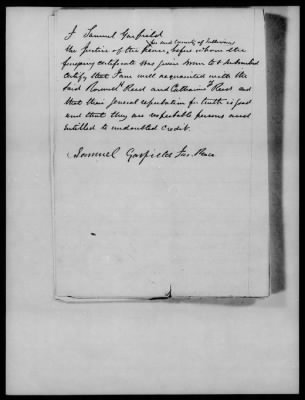 I Samuel Garfield
in and County of Sullivan
the Justice of the Peace, before whom the
foregoing certificate was given sworn to & subscribed
certify that I am well acquainted with the
said H Reed and Catharine Reed and
that their general reputation for truth is good
and that they are respectable persons and
intitled to undoubted credit.
Samuel Garfield Jus. Peace